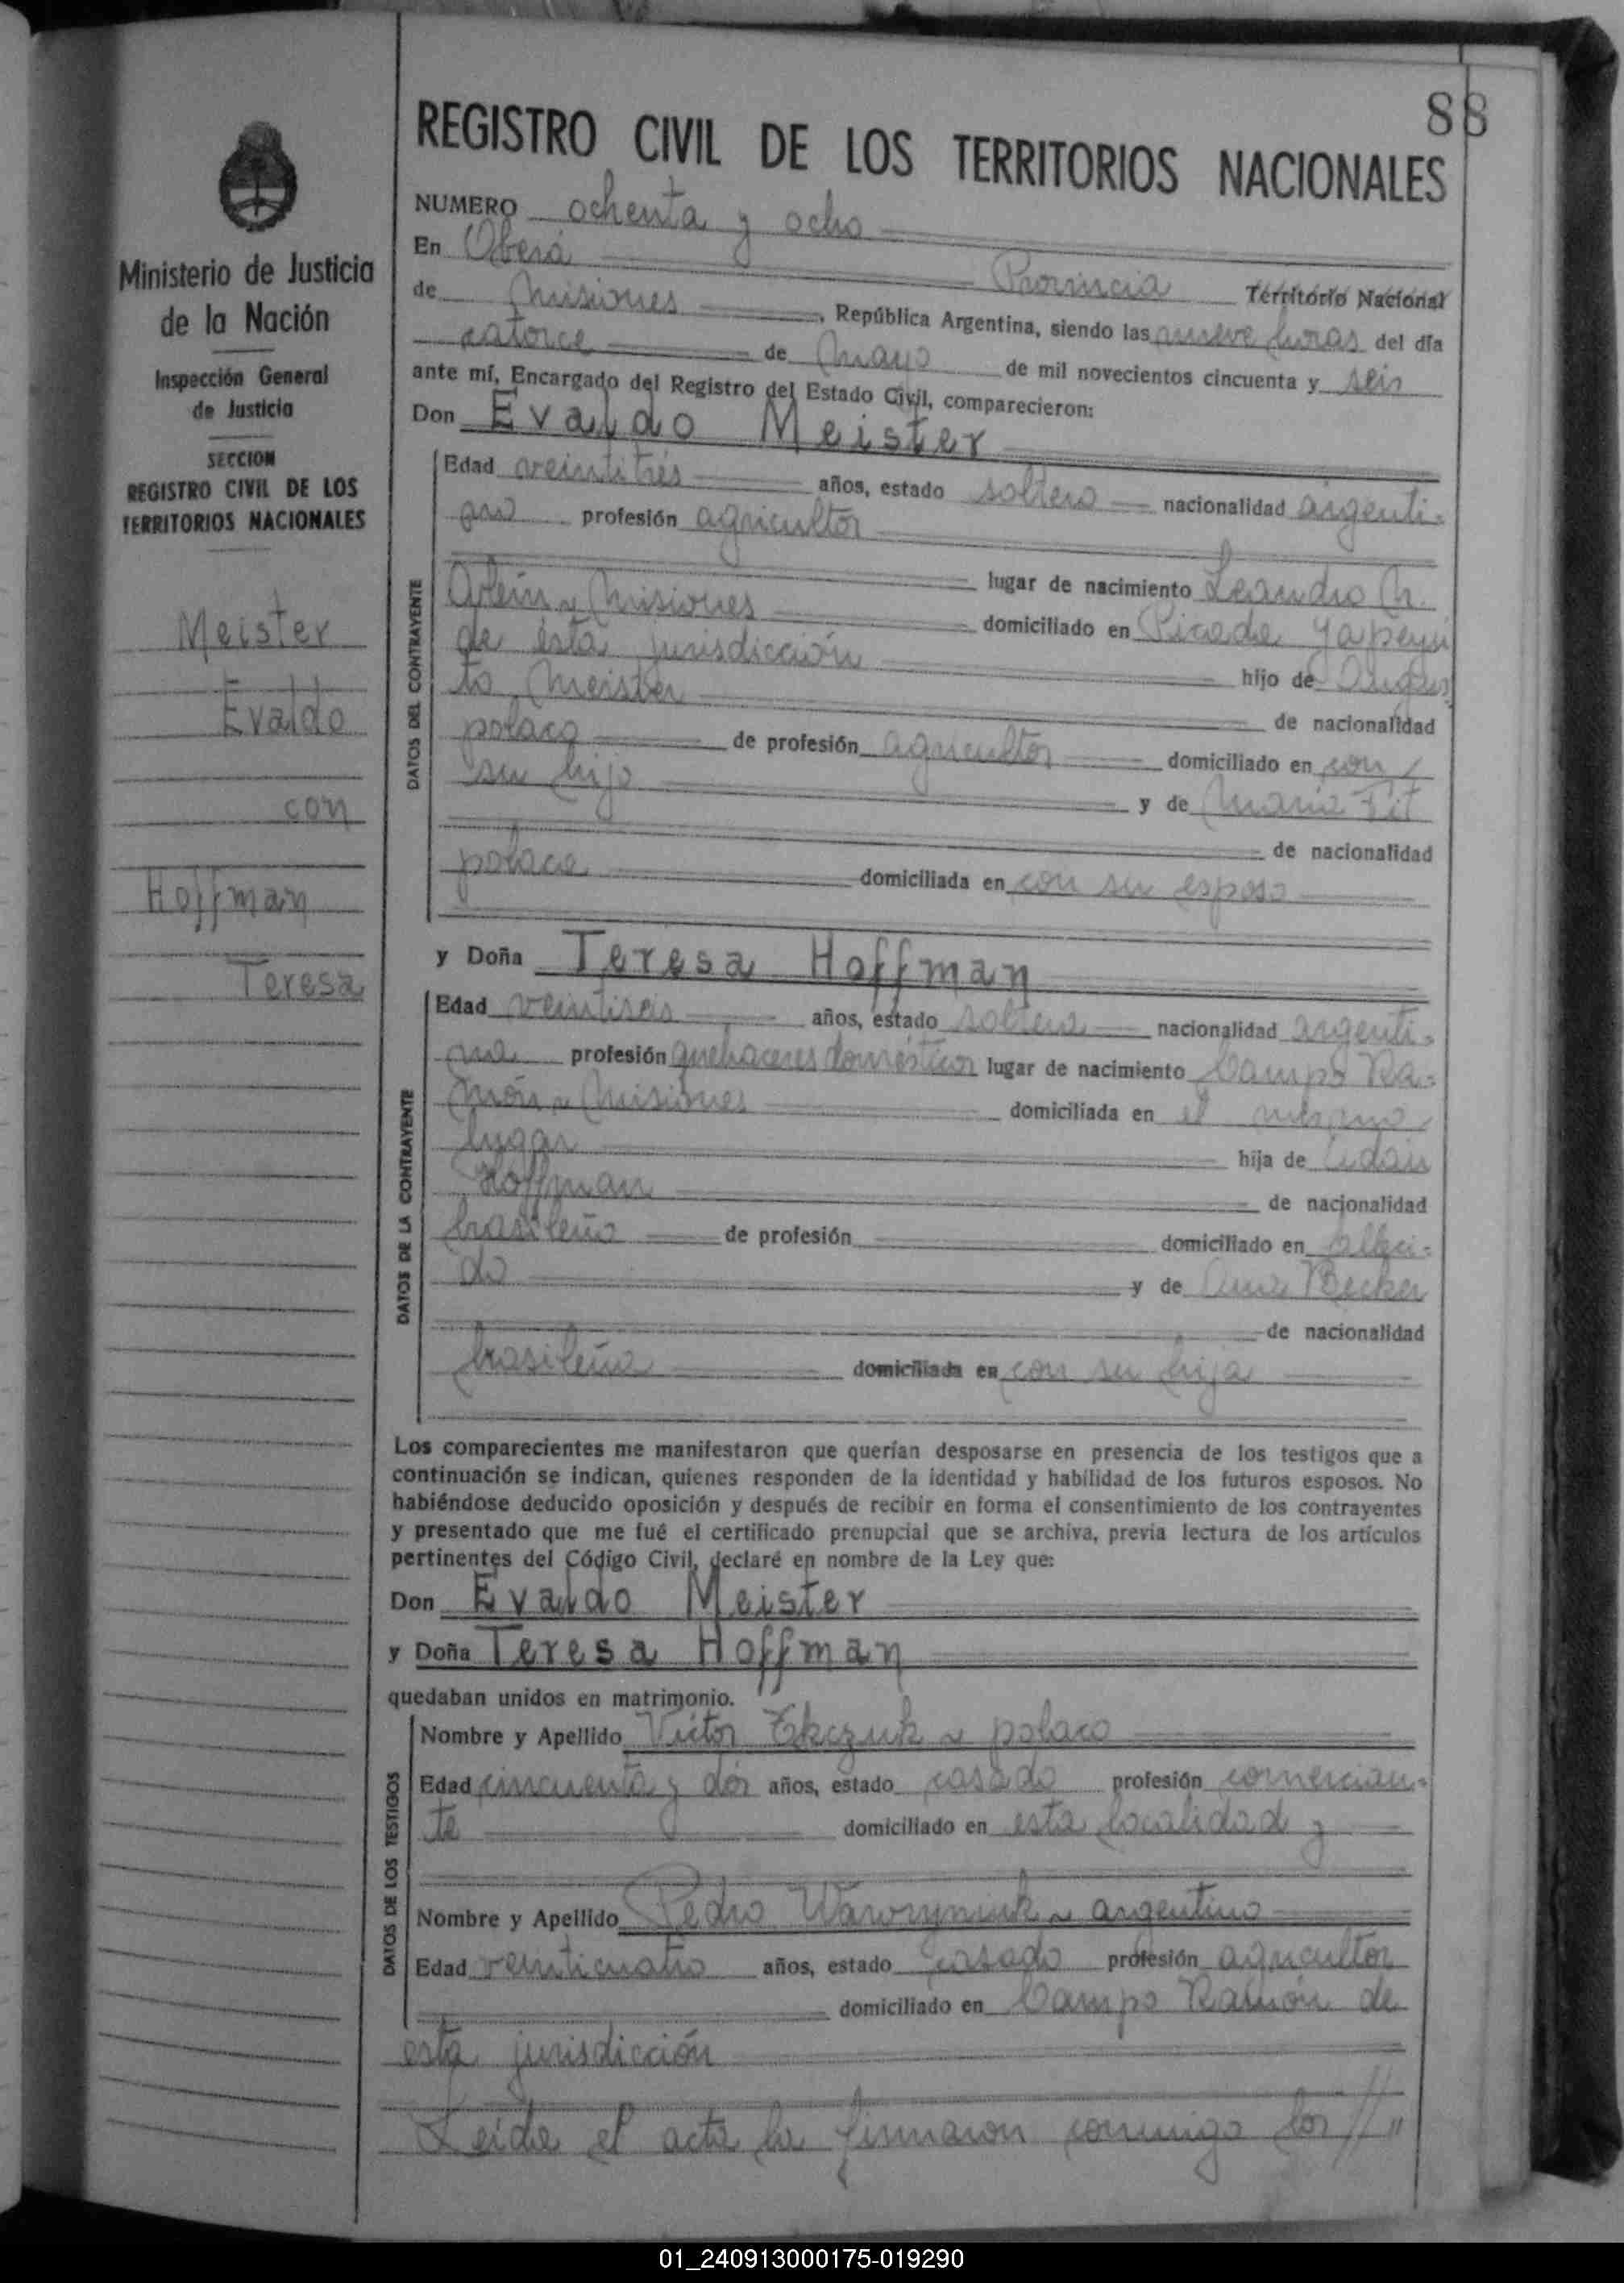 88
REGISTRO CIVIL DE LOS TERRITORIOS NACIONALES
Ministerio de Justicia
de la Nación
Inspección General
de Justicia
SECCION
REGISTRO CIVIL DE LOS
TERRITORIOS NACIONALES
Meister
Evaldo
con
Hoffman
Teresa
NUMERO ochenta y ocho
En Oberá Provincia Territorio Nacional
de Misiones, República Argentina, siendo las nueve horas del día
catorce de Mayo de mil novecientos cincuenta y seis
ante mí, Encargado del Registro del Estado Civil, comparecieron:
Don Evaldo Meister
DATOS DEL CONTRAYENTE
Edad veintitrés años, estado soltero nacionalidad argenti-
no profesión agricultor
lugar de nacimiento Leandro N.
Além ~ Misiones domiciliado en Picada Yapeyú
de ésta jurisdicción hijo de Augus
to Meister de nacionalidad
polaca de profesión agricultor domiciliado en con
su hijo y de María Fit
de nacionalidad
polaca domiciliada en con su esposo
y Doña Teresa Hoffman
DATOS DE LA CONTRAYENTE
Edad veintiseis años, estado soltera nacionalidad argenti-
na profesión quehaceres domésticos lugar de nacimiento Campo Ra-
món ~ Misiones domiciliada en el mismo
lugar hija de Adán
Hoffman de nacionalidad
brasileño de profesión domiciliado en falleci-
do y de Ana Becker
de nacionalidad
brasileña domiciliada en con su hija
Los comparecientes me manifestaron que querían desposarse en presencia de los testigos que a
continuación se indican, quienes responden de la identidad y habilidad de los futuros esposos. No
habiéndose deducido oposición y después de recibir en forma el consentimiento de los contrayentes
y presentado que me fué el certificado prenupcial que se archiva, previa lectura de los artículos
pertinentes del Código Civil, declaré en nombre de la Ley que:
Don Evaldo Meister
y Doña Teresa Hoffman
quedaban unidos en matrimonio.
DATOS DE LOS TESTIGOS
Nombre y Apellido Víctor ~ polaco
Edad cincuenta y dos años, estado casado profesión comercian-
te domiciliado en esta localidad y
Nombre y Apellido Pedro Wawryniuk ~ argentino
Edad veinticuatro años, estado casado profesión agricultor
domiciliado en Campo Ramón de
esta jurisdicción
Leida el acta la firmaron conmigo los //"
01_240913000175-019290